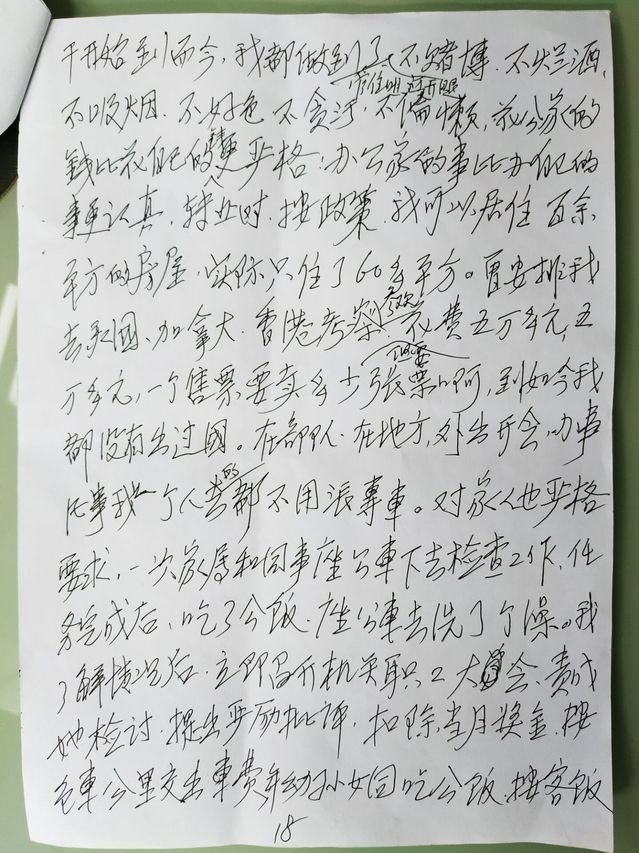 干开始到而今，我都做到了不赌博、不烂酒、
不吸烟、不好色、不贪污、不偷懒，花公家的
錢比花自己的錢更严格！办公家的事比办自己的
事更认真，转业时，按政策，我可以居住百余
平方的房屋，实际只住了60多平方。曾安排我
去美國、加拿大、香港考察，花費五万多元，五
万多元，一个售票要卖多少张票啊，到如今我
都没有出过國。在部队、在地方，外出开会、办事
凡事我一个人的都不用派專車。对家人也严格
要求，一次家属和同事座公車下去检查工作，任
务完成后，吃了公飯，座公車去洗了个澡。我
了解情况后，立即召开机关职工大会，責成
她检讨，提出严励批评，扣除当月奖金，按
包車公里交出車費，年幼孙女回吃公飯，按客饭
18